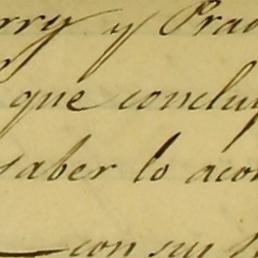 rry y Prad
que concluy
saber lo acor
con sus